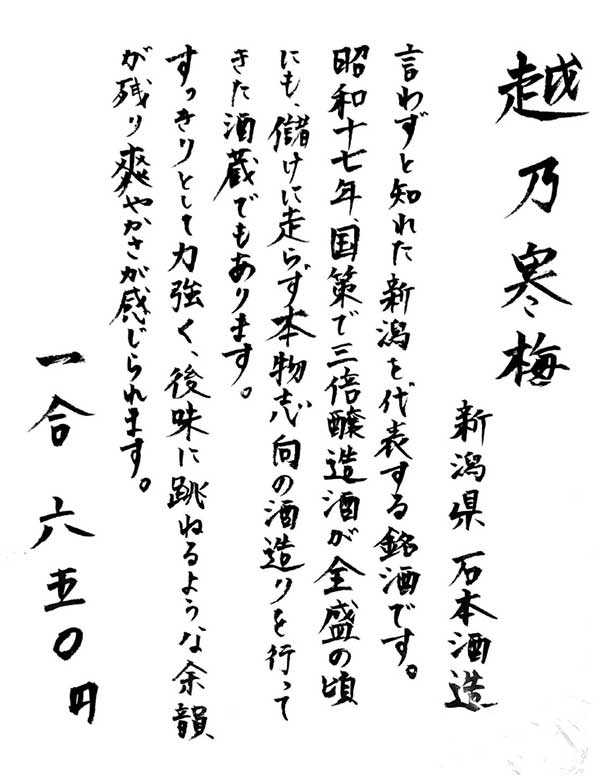 越乃寒梅
新潟県 石本酒造
言わずと知れた新潟を代表する銘酒です。
昭和十七年、国策で三倍醸造酒が全盛の頃
にも、儲けに走らず本物志向の酒造りを行って
きた酒蔵でもあります。
すっきりとして力強く、後味に跳ねるような余韻
が残り爽やかさが感じられます。
一合 六五〇円